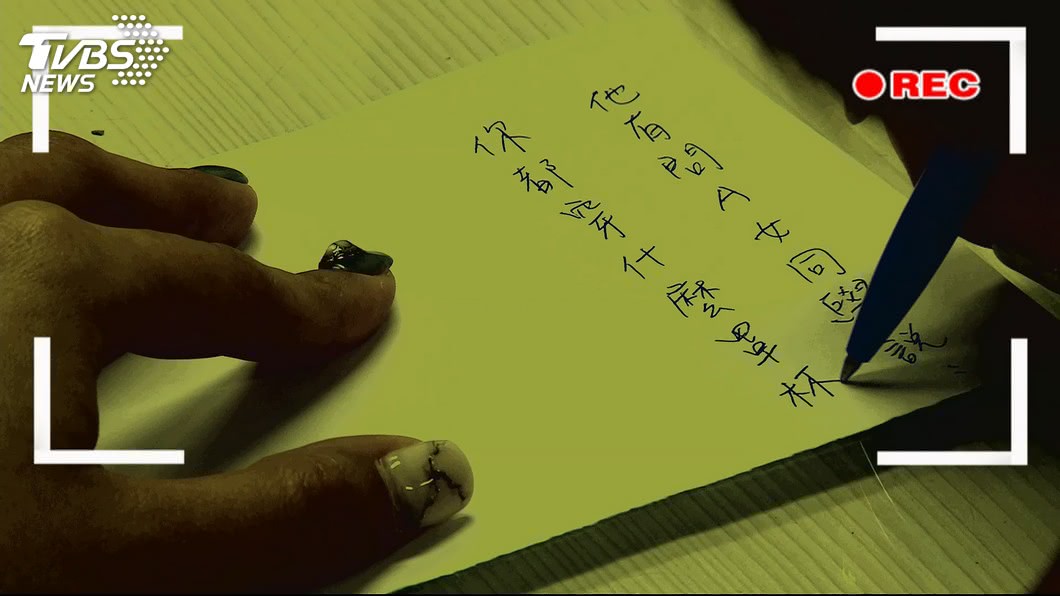 TVBS
NEWS
REC
他有問A女同學說
你都穿什麼罩杯